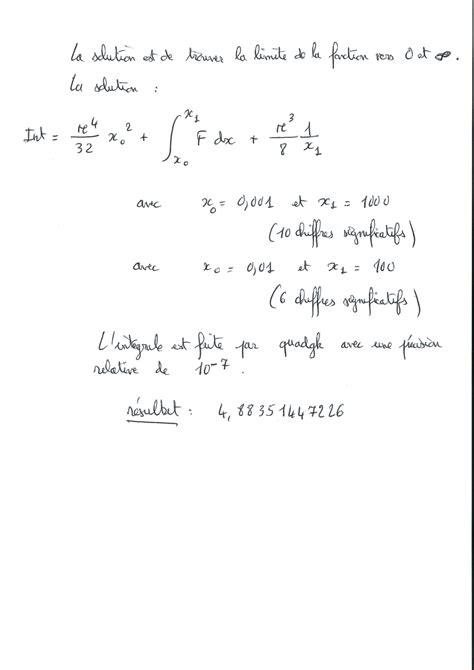 La solution est de trouver la limite de la fonction vers 0 et ∞.
La solution :
Int = π⁴/32 x₀² + ∫_{x₀}^{x₁} F dx + π³/8 1/x₁
avec x₀ = 0,001 et x₁ = 1000
(10 chiffres significatifs)
avec x₀ = 0,01 et x₁ = 100
(6 chiffres significatifs)
L'intégrale est faite par quadgk avec une précision
relative de 10⁻⁷.
résultat : 4,88351447226